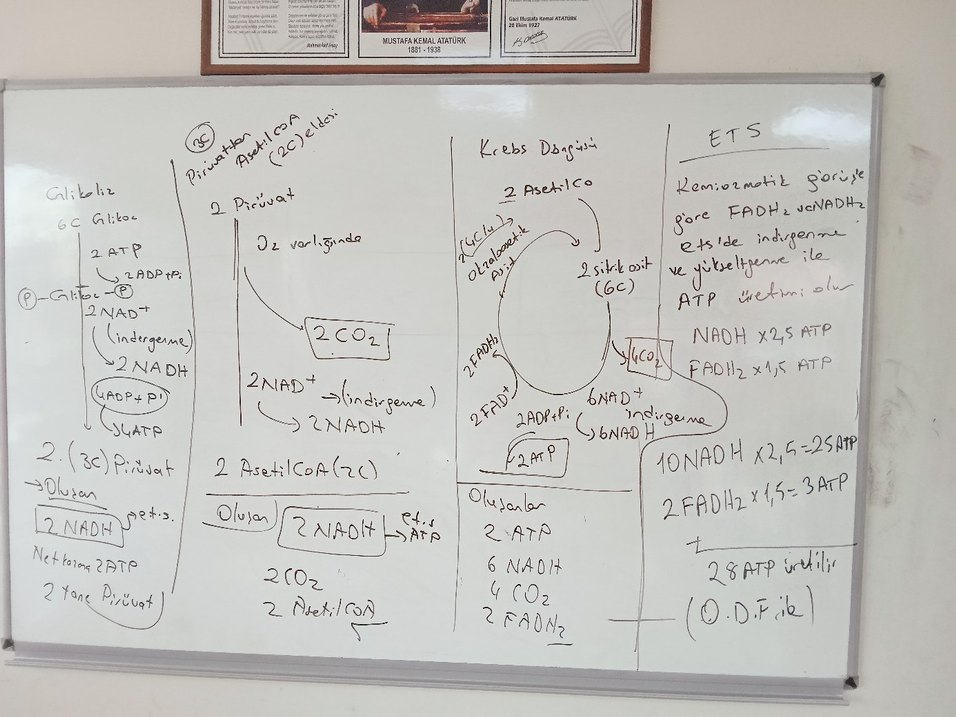 MUSTAFA KEMAL ATATÜRK
1881 - 1938
Gazi Mustafa Kemal ATATÜRK
20 Ekim 1927
Glikoliz
6C Glikoz
2 ATP
2ADP+Pi
P-Glikoz-P
2NAD+
(indirgenme)
2NADH
4ADP+Pi
4ATP
2.(3C)Pirüvat
→Oluşan
2 NADH → e.t.s.
Net kazanç 2ATP
2 tane Pirüvat
3C
Pirüvattan
AsetilCOA
(2C) eldesi
2 Pirüvat
O2 varlığında
2CO2
2NAD+ →(indirgenme)
2NADH
2 AsetilCoA(2C)
Oluşan
2NADH → e.t.s
ATP
2CO2
2 AsetilCoA
Krebs Döngüsü
2 AsetilCo
2(4C'lu)
Okzaloasetik
Asit
2 sitrik asit
(6C)
4CO2
2FADH2
2FAD+
6NAD+
indirgenme
6NADH
2ADP+Pi
2ATP
Oluşanlar
2 ATP
6 NADH
4 CO2
2 FADH2
ETS
Kemiozmotik görüş'e
göre FADH2 ve NADH2
ets'de indirgenme
ve yükseltgenme ile
ATP üretimi olur
NADH x2,5 ATP
FADH2 x1,5 ATP
10NADH x2,5=25ATP
2 FADH2 x1,5=3ATP
+
28 ATP üretilir
(O.D.F. ile)